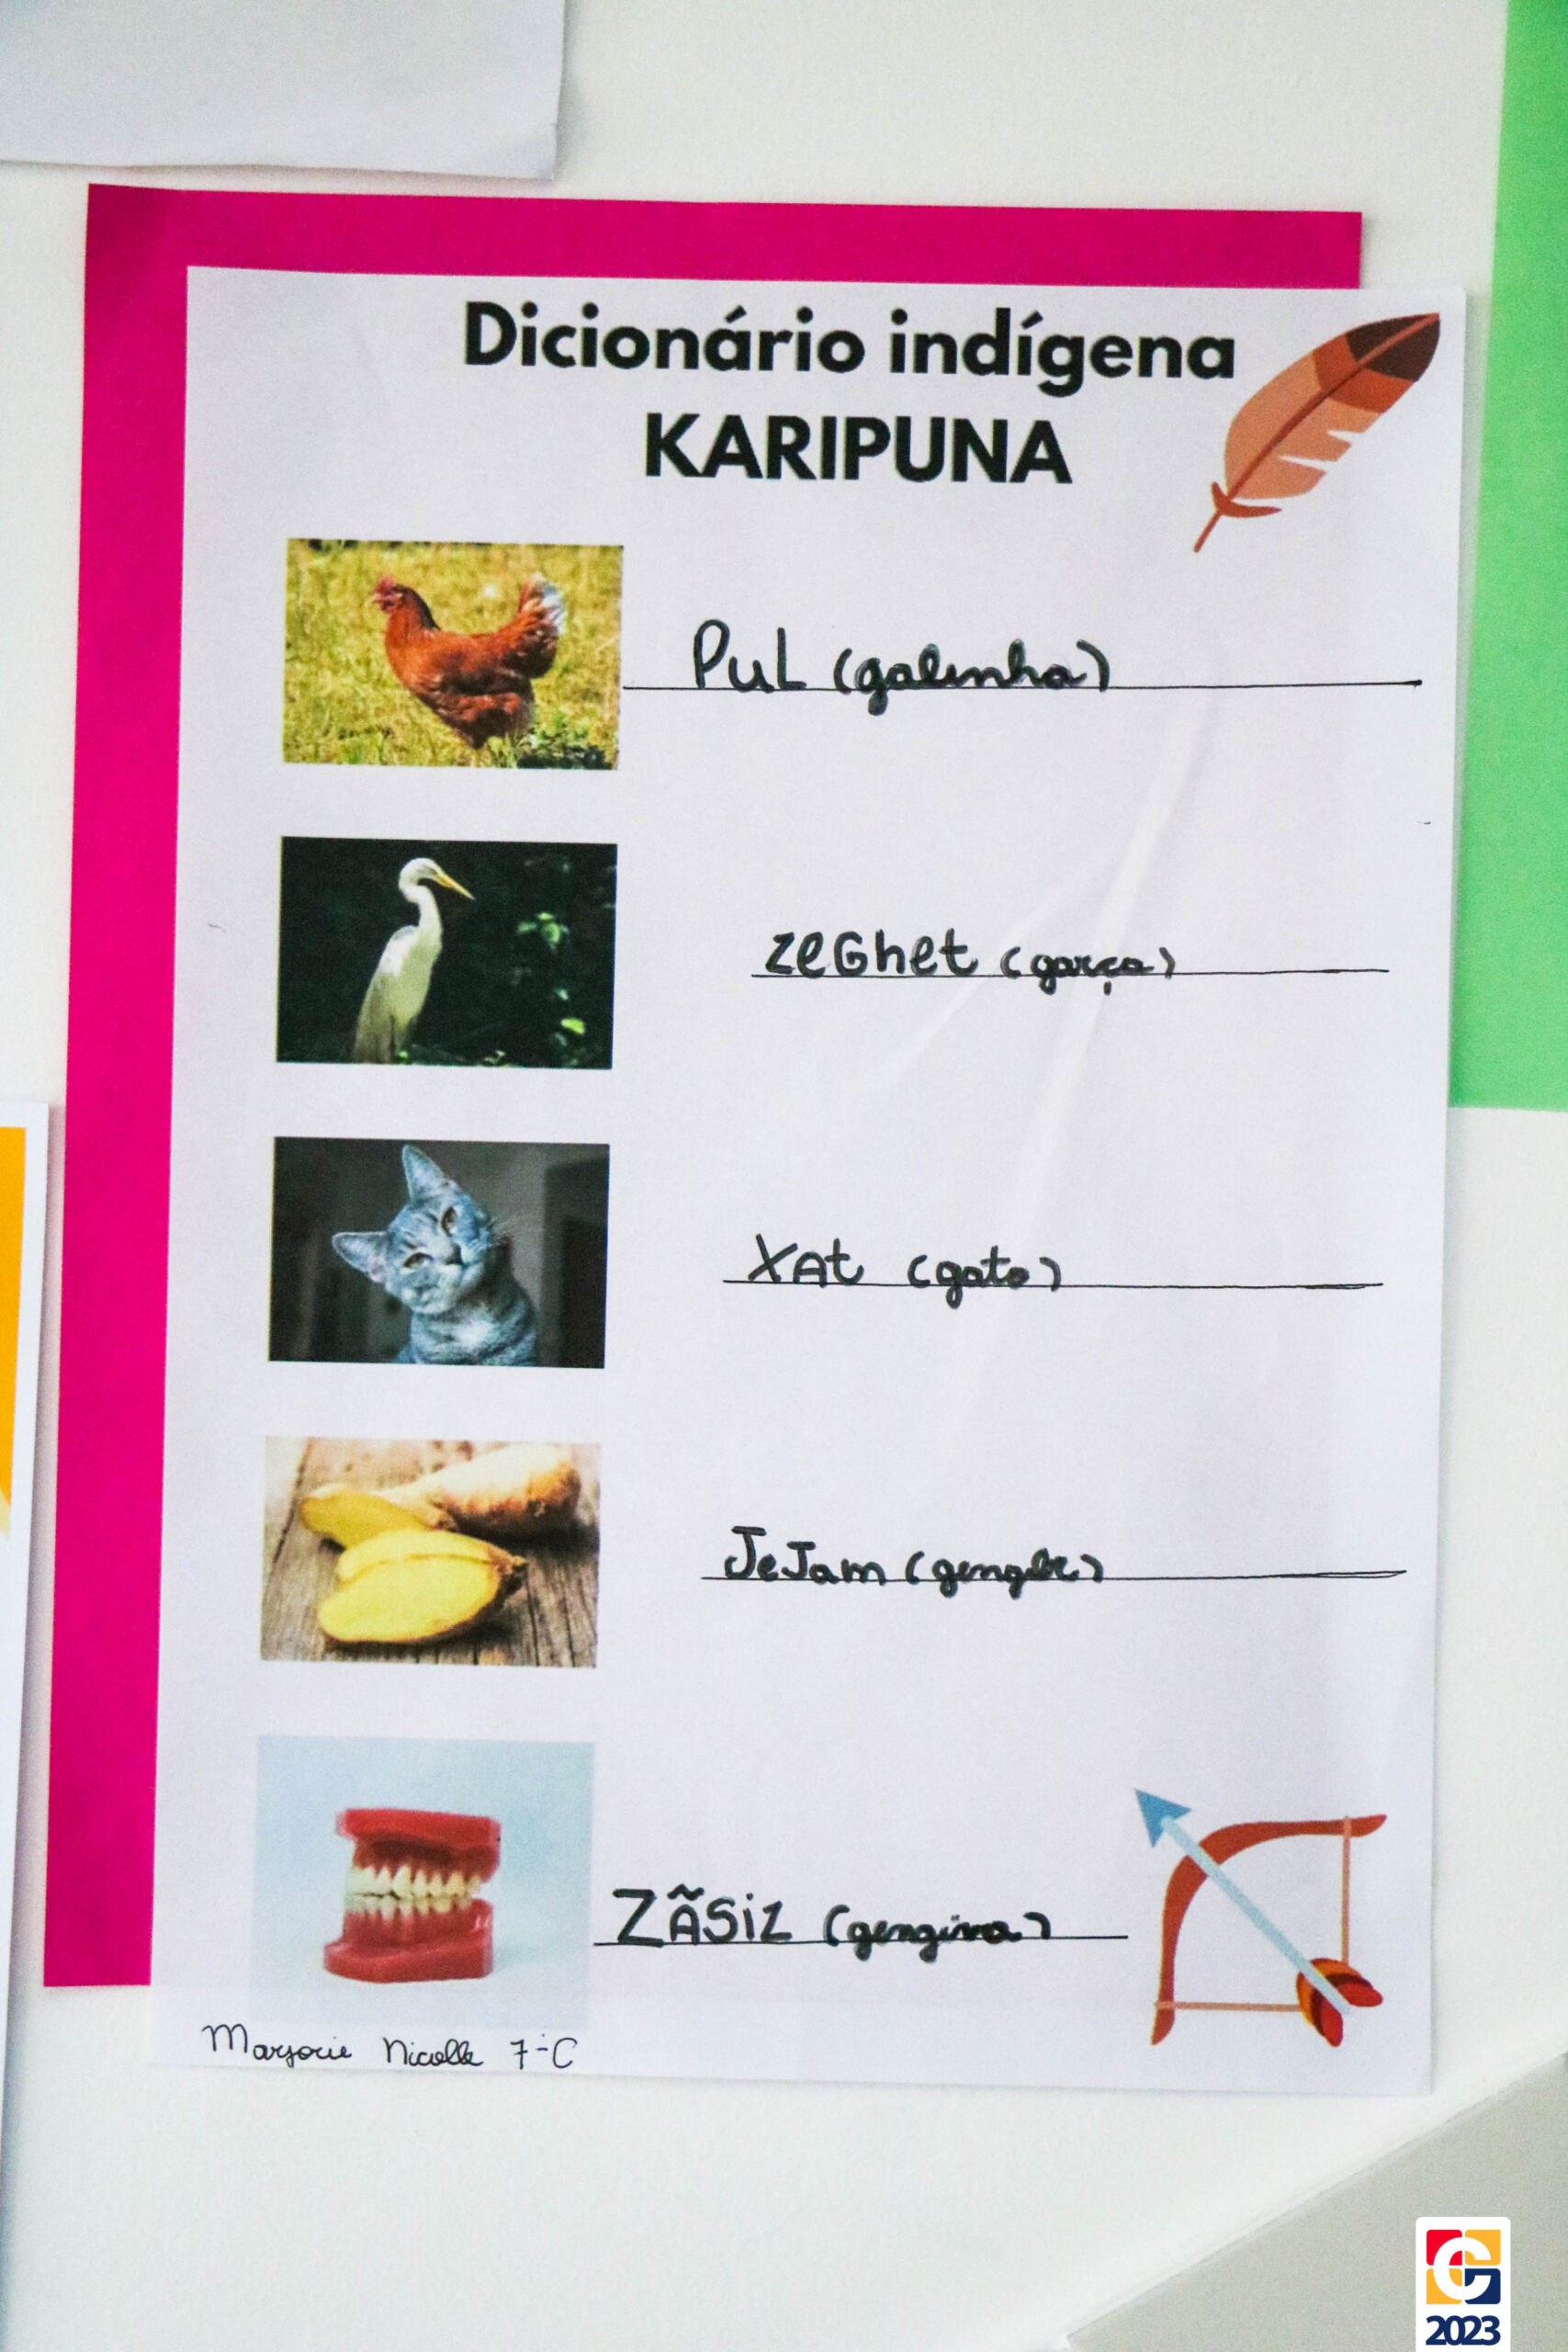 Dicionário indígena
KARIPUNA
PUL (galinha)
ZEGhet (garça)
XAt (gato)
JeJam (gengibr)
ZÃSiZ (gengiva)
Marjorie Nicolle 7-C
2023